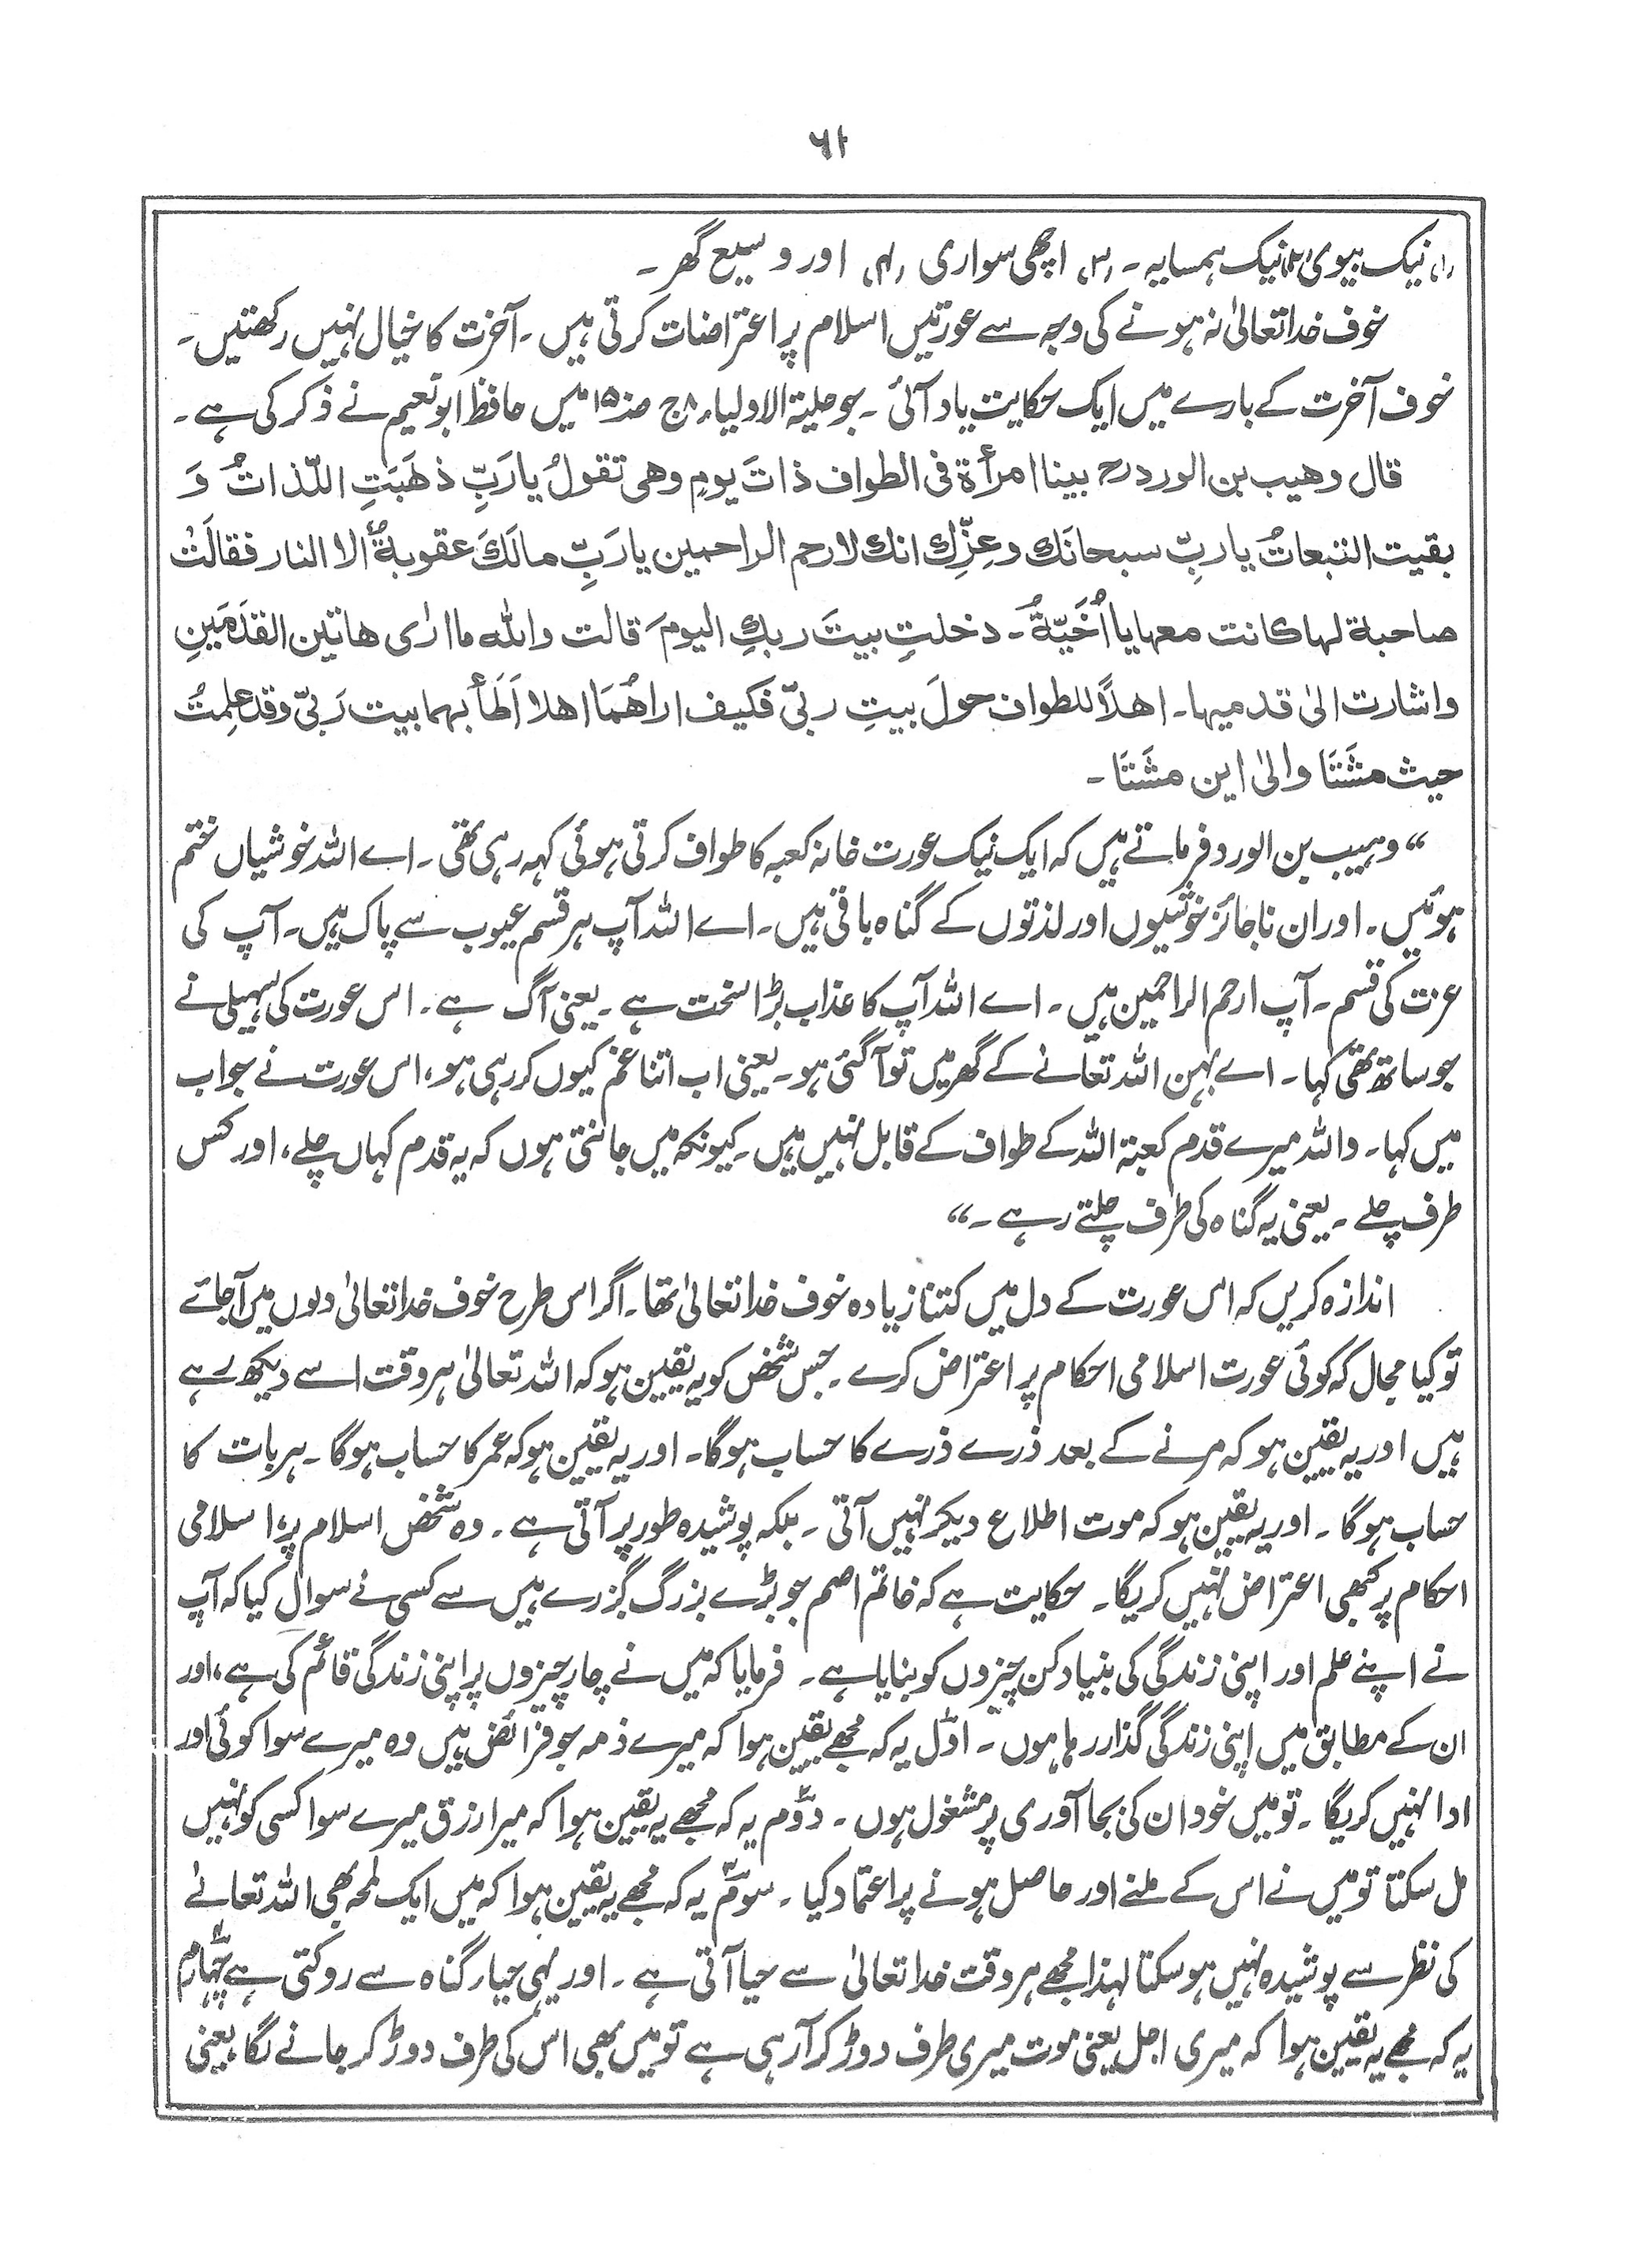 ۶۱
(۱) نیک بیوی (۲) نیک ہمسایہ ۔ (۳) اچھی سواری (۴) اور وسیع گھر ۔
خوف خدا تعالیٰ نہ ہونے کی وجہ سے عورتیں اسلام پر اعتراضات کرتی ہیں ۔ آخرت کا خیال نہیں رکھتیں ۔
خوف آخرت کے بارے میں ایک حکایت یاد آئی ۔ جو حلیۃ الاولیاء ج ۸ ص ۱۵ میں حافظ ابونعیم نے ذکر کی ہے ۔
قال وهيب بن الورد رح بينا امرأة فى الطواف ذاتَ يومٍ وهى تقولُ يا رَبِّ ذَهَبَتِ اللّذاتُ وَ
بقيت التبعاتُ يا ربِّ سبحانَك وعِزِّك انك لارحم الراحمين يا رَبِّ مالَكَ عقوبةٌ الا النار فقالَتْ
صاحبة لها كانت معها يا اُخَيّةُ ۔ دخلتِ بيتَ ربكِ اليومَ قالت والله ما ارٰى هاتين القدَمَينِ
واشارت الىٰ قدميها ۔ اهلاً للطواف حولَ بيتِ ربىّ فكيف اراهُمَا اهلا اَطَأُ بهما بيت رَبىّ وقد علِمتُ
حيث مشَتَا والىٰ اين مشَتَا ۔
” وہیب بن الورد فرماتے ہیں کہ ایک نیک عورت خانہ کعبہ کا طواف کرتی ہوئی کہہ رہی تھی ۔ اے اللہ خوشیاں ختم
ہوئیں ۔ اور ان ناجائز خوشیوں اور لذتوں کے گناہ باقی ہیں ۔ اے اللہ آپ ہر قسم عیوب سے پاک ہیں ۔ آپ کی
عزت کی قسم ۔ آپ ارحم الراحمین ہیں ۔ اے اللہ آپ کا عذاب بڑا سخت ہے ۔ یعنی آگ ہے ۔ اس عورت کی سہیلی نے
جو ساتھ تھی کہا ۔ اے بہن اللہ تعالےٰ کے گھر میں تو آگئی ہو ۔ یعنی اب اتنا غم کیوں کر رہی ہو ، اس عورت نے جواب
میں کہا ۔ واللہ میرے قدم کعبۃ اللہ کے طواف کے قابل نہیں ہیں ۔ کیونکہ میں جانتی ہوں کہ یہ قدم کہاں چلے ، اور کس
طرف چلے ۔ یعنی یہ گناہ کی طرف چلتے رہے ۔ “
اندازہ کریں کہ اس عورت کے دل میں کتنا زیادہ خوف خدا تعالیٰ تھا ۔ اگر اس طرح خوف خدا تعالیٰ دلوں میں آجائے
تو کیا مجال کہ کوئی عورت اسلامی احکام پر اعتراض کرے ۔ جس شخص کو یہ یقین ہو کہ اللہ تعالیٰ ہر وقت اسے دیکھ رہے
ہیں اور یہ یقین ہو کہ مرنے کے بعد ذرے ذرے کا حساب ہوگا ۔ اور یہ یقین ہو کہ عمر کا حساب ہوگا ۔ ہر بات کا
حساب ہوگا ۔ اور یہ یقین ہو کہ موت اطلاع دیکر نہیں آتی ۔ بلکہ پوشیدہ طور پر آتی ہے ۔ وہ شخص اسلام پر ، اسلامی
احکام پر کبھی اعتراض نہیں کریگا ۔ حکایت ہے کہ خاتم اصم جو بڑے بزرگ گزرے ہیں سے کسی نے سوال کیا کہ آپ
نے اپنے علم اور اپنی زندگی کی بنیاد کن چیزوں کو بنایا ہے ۔ فرمایا کہ میں نے چار چیزوں پر اپنی زندگی قائم کی ہے ، اور
ان کے مطابق میں اپنی زندگی گذار رہا ہوں ۔ اوّل یہ کہ مجھے یقین ہوا کہ میرے ذمہ جو فرائض ہیں وہ میرے سوا کوئی اور
ادا نہیں کریگا ۔ تو میں خود ان کی بجا آوری پر مشغول ہوں ۔ دوّم یہ کہ مجھے یہ یقین ہوا کہ میرا رزق میرے سوا کسی کو نہیں
مل سکتا تو میں نے اس کے ملنے اور حاصل ہونے پر اعتماد کیا ۔ سوّم یہ کہ مجھے یہ یقین ہوا کہ میں ایک لمحہ بھی اللہ تعالےٰ
کی نظر سے پوشیدہ نہیں ہو سکتا لہذا مجھے ہر وقت خدا تعالیٰ سے حیا آتی ہے ۔ اور یہی حیا ر گناہ سے روکتی ہے چہارم
یہ کہ مجھے یہ یقین ہوا کہ میری اجل یعنی موت میری طرف دوڑ کر آرہی ہے تو میں بھی اس کی طرف دوڑ کر جانے لگا یعنی